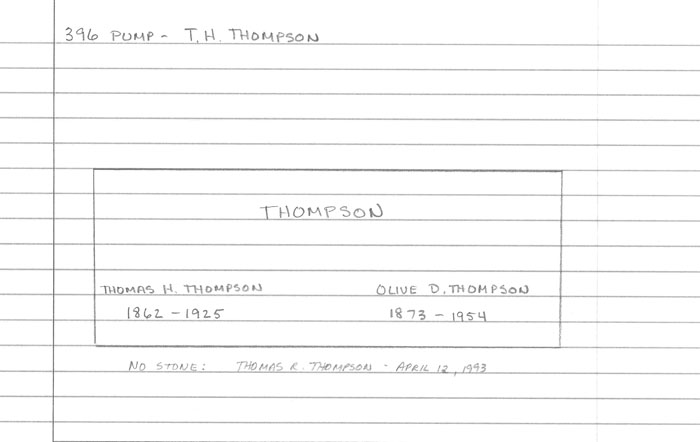 396 PUMP - T.H. THOMPSON
THOMPSON
THOMAS H. THOMPSON OLIVE D. THOMPSON
1862 - 1925 1873 - 1954
NO STONE: THOMAS R. THOMPSON - APRIL 12, 1993